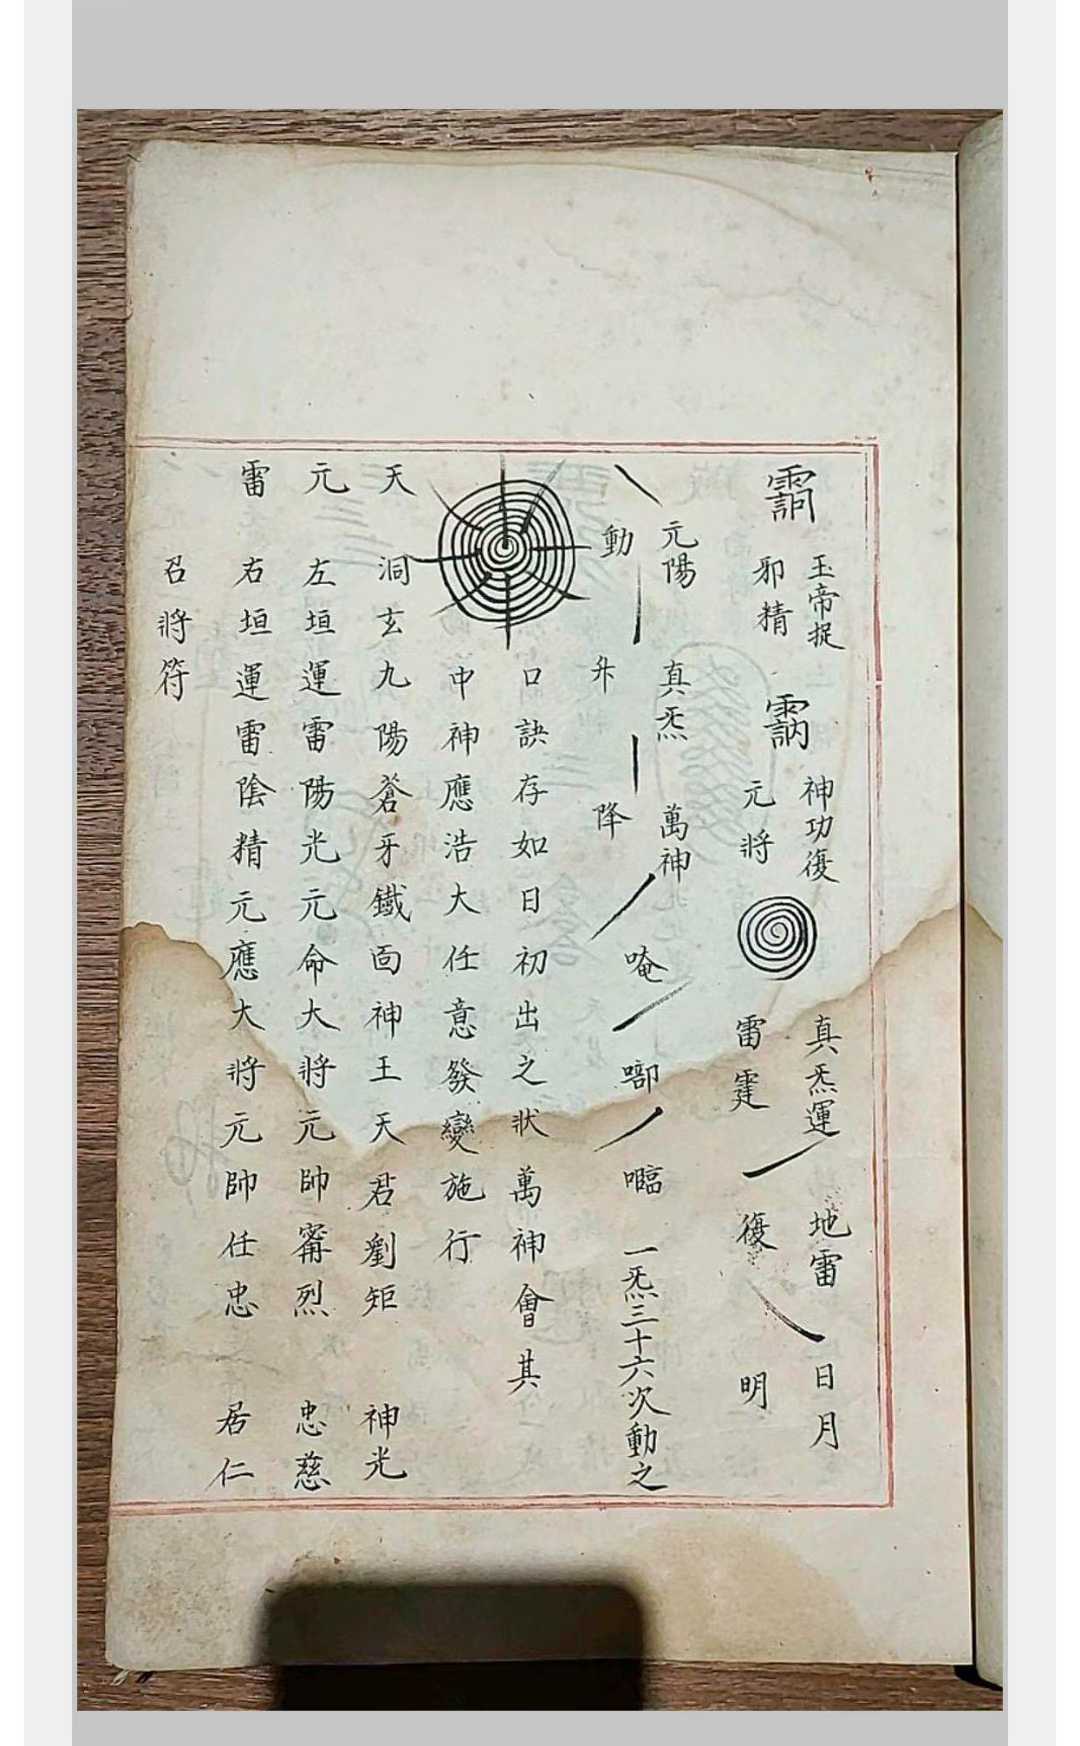 玉帝捉
邪精
神功復
元將
真炁運
雷霆
地雷
復
日月
明
元陽
動
真炁
升
萬神
降
唵
㘅
一炁三十六次動之
口訣存如日初出之狀萬神會其
中神應浩大任意發變施行
天洞玄九陽蒼牙鐵面神王天君劉矩 神光
元左垣運雷陽光元命大將元帥甯烈 忠慈
雷右垣運雷陰精元應大將元帥任忠 居仁
召將符